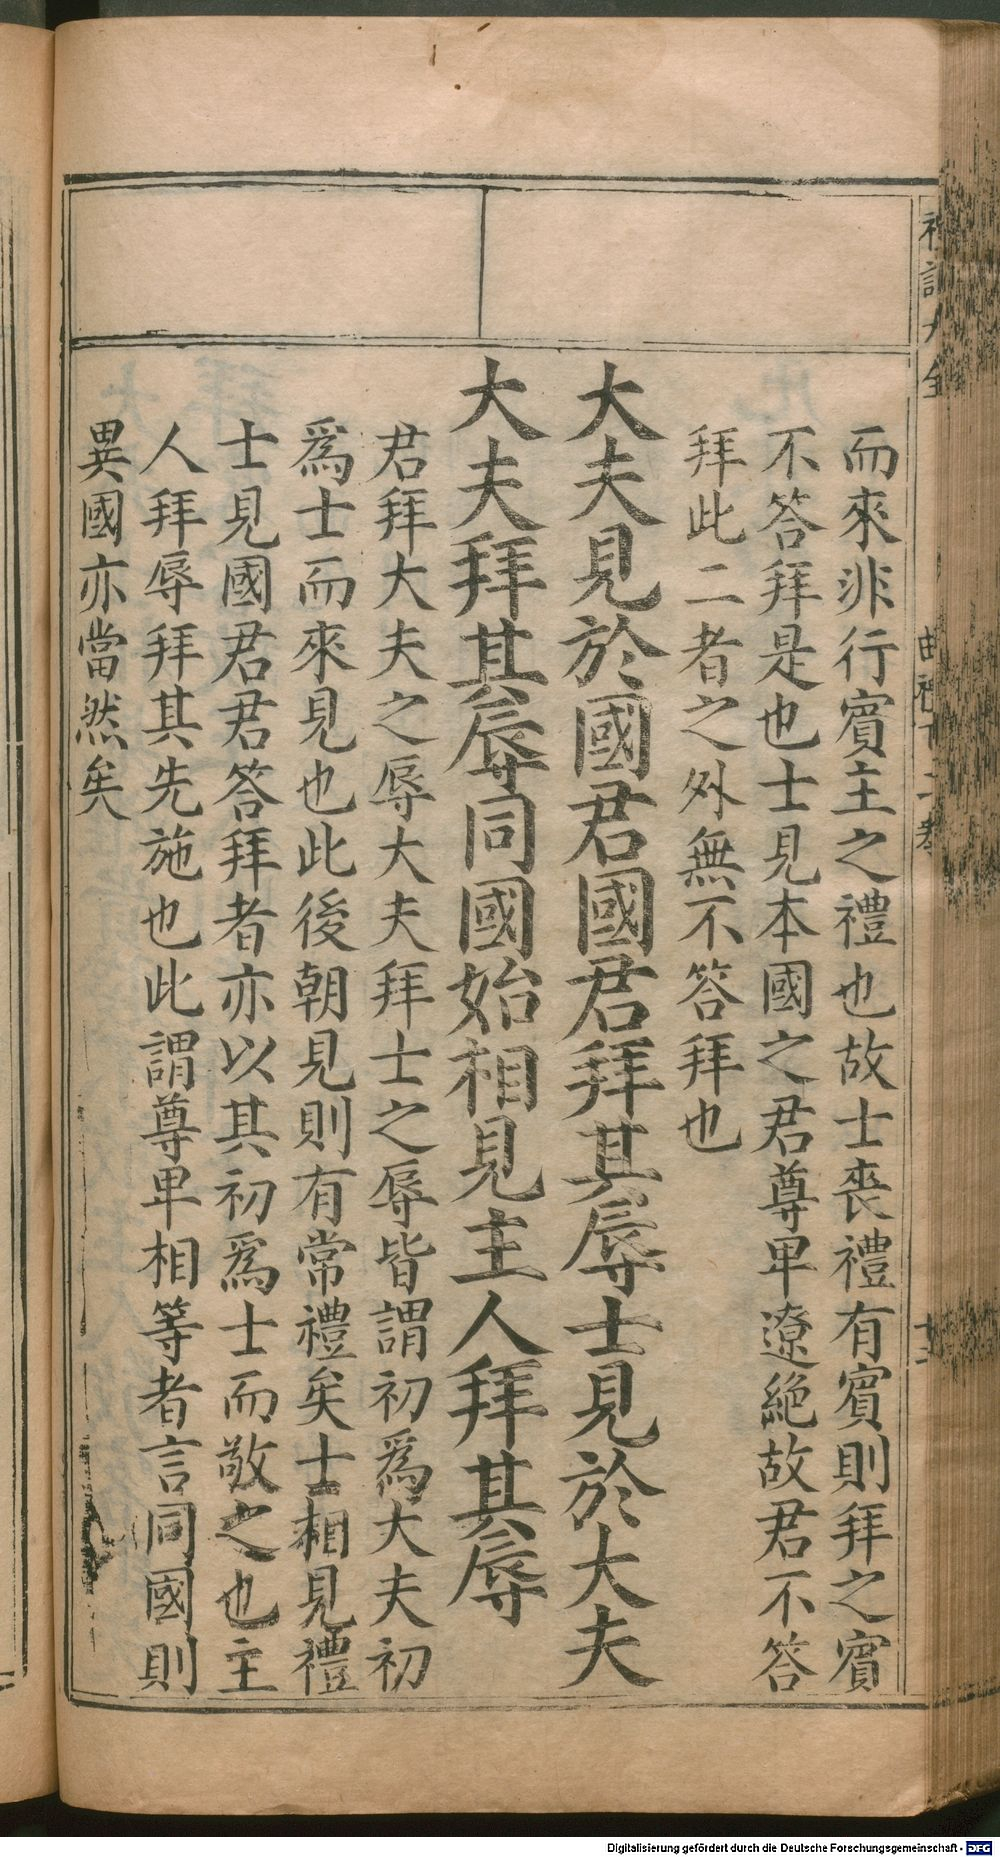 而來非行賓主之禮也故士喪禮有賓則拜之賓
不答拜是也士見本國之君尊卑遼絶故君不答
拜此二者之外無不答拜也
大夫見於國君國君拜其辱士見於大夫
大夫拜其辱同國始相見主人拜其辱
君拜大夫之辱大夫拜士之辱皆謂初爲大夫初
爲士而來見也此後朝見則有常禮矣士相見禮
士見國君君答拜者亦以其初爲士而敬之也主
人拜辱拜其先施也此謂尊卑相等者言同國則
異國亦當然矣
Digitalisierung gefördert durch die Deutsche Forschungsgemeinschaft - DFG